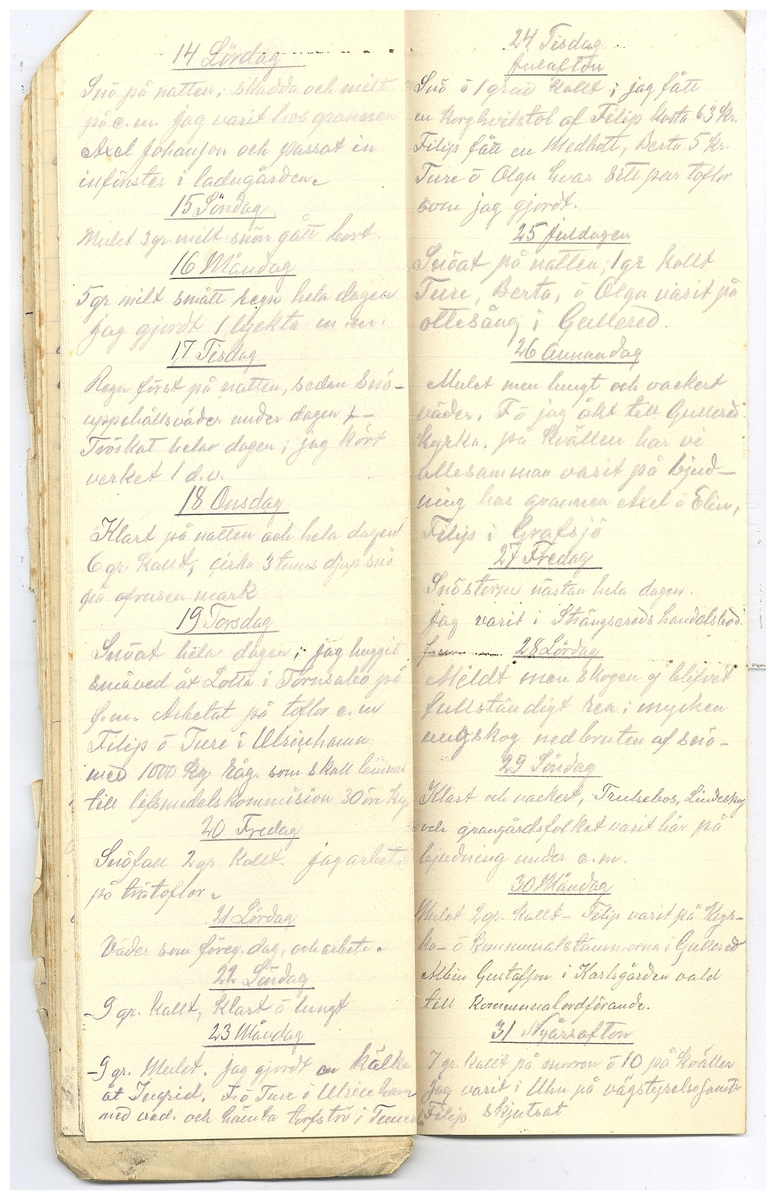 14 Lördag
Snö på natten; sladda och milt
på e.m. jag varit hos grannen
Axel Johanson och passat in
infönster i ladugården.
15 Söndag
Mulet 3 gr. milt snön gått bort.
16 Måndag
5 gr milt smått regn hela dagen
jag gjordt 1 lyckta em.
17 Tisdag
Regn först på natten, sedan snö-
uppehållsväder under dagen
Tröskat helar dagen; jag kört
verket 1 d.v.
18 Onsdag
Klart på natten och hela dagen
6 gr. kallt; cirka 3 tums djup snö
på ofrusen mark
19 Torsdag
Snöat hela dagen; jag huggit
småved åt Lotta i Törnsabo på
f.m. Arbetat på toflor e.m
Filip ö Ture i Ulricehamn
med 1000 kg råg. som skall lämnas
till lifsmedelskommision 30 öre kg
20 Fredag
Snöfall 2 gr. kallt. jag arbet
på trätoflor.
21 Lördag
Väder som föreg. dag, och arbete.
22 Söndag
-9 gr. kallt, klart ö lungt
23 Måndag
-9 gr. Mulet. jag gjordt en kälke
åt Ingrid. F. ö Ture i Ulricehamn
med ved. och hämta torfströ i
24 Tisdag
Julafton
Snö ö 1 grad kallt; jag fått
en Korghvilstol af Filip kosta 63 kr.
Filip fått en Medbott, Berta 5 kr.
Ture ö Olga hvar sitt par toflor
som jag gjordt.
25 Juldagen
Snöat på natten; 1 gr. kallt
Ture, Berta, ö Olga varit på
ottesång i Gullered.
26 Annandag
Mulet men lungt och vackert
väder. F ö jag åkt till Gullered
kyrka. på kvällen har vi
allesamman varit på bjud-
ning hos grannen Axel ö Elin,
Filip i Grafsjö
27 Fredag
Snöstorm nästan hela dagen.
jag varit i Strängsereds handelsbod.
28 Lördag
Mildt men skogen ej blifvit
fullständigt ren; mycken
ungskog nedbruten af snö-
29 Söndag
Klart och vackert, Trulsebos, Lindeskog
och grangårdsfolket varit här på
bjudning under e.m.
30 Måndag
Mulet 2 gr. kallt- Filip varit på Kyr-
ko- ö kommunalstämmorna i Gullered
Albin Gustafson i Karlsgården vald
till Kommunalordförande.
31 Nyårsafton
7 gr. kallt på morron ö 10 på kvällen
jag varit i Uhn på vägstyrelse
Filip skjutsat